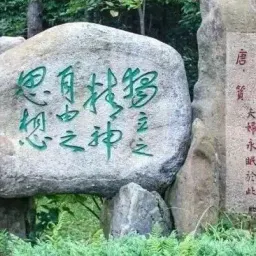 獨立之
精神
自由之
思想
唐、賀
夫婦永眠於此